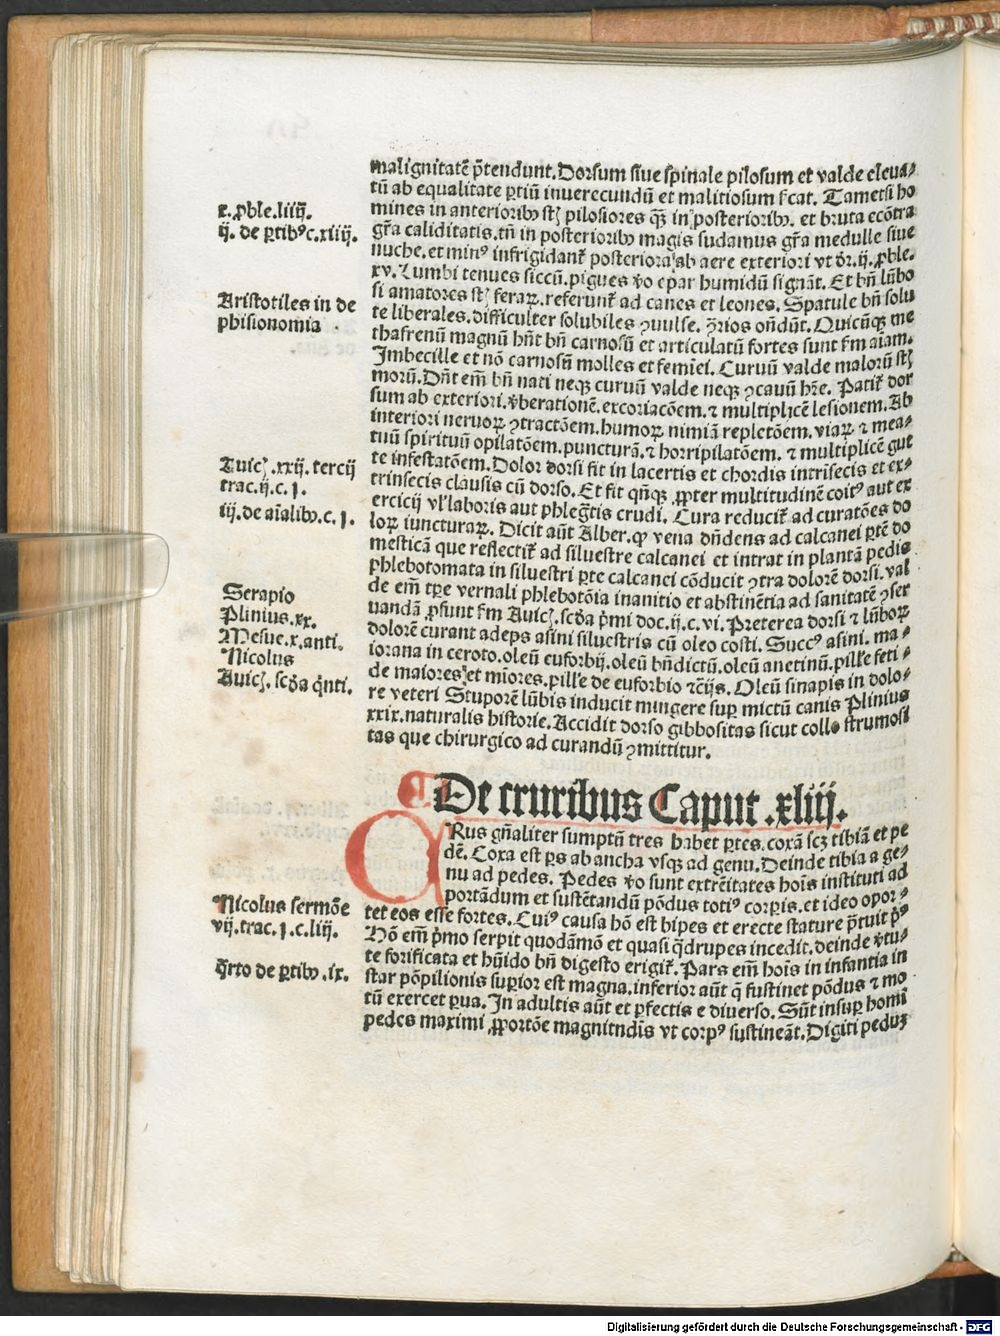 malignitatē p̄tendunt. Dorsum siue spinale pilosum et valde eleua⸗
tū ab equalitate ꝑtiū inuerecundū et malitiosum ſ̄cat. Tametsi ho
mines in anteriorib⁹ st̄ pilosiores q̄ꝫ in posteriorib⁹. et bruta ecōtra
gr̄a caliditatis. tn̄ in posteriorib⁹ magis sudamus gr̄a medulle siue
nuche. et min⁹ infrigidant̄ posteriora ab aere exteriori vt dr̄. ij. ꝓble.
xv. Lumbi tenues siccū. pigues v̊o epar humidū signāt. Et bn̄ lūbo
si amatores st̄ feraꝝ. referunt̄ ad canes et leones. Spatule bn̄ solu
te liberales. difficulter solubiles ꝯuulse. ꝯ̄rios on̄dūt. Quicūqꝫ me
thafrenū magnū hn̄t bn̄ carnosū et articulatū fortes sunt ẜm aīam.
Imbecille et nō carnosū molles et femiēi. Curuū valde malorū st̄
morū. Dn̄t em̄ bn̄ nati neqꝫ curuū valde neqꝫ ꝯcauū hr̄e. Patit̄ dor
sum ab exteriori. v̊berationē. excoriacōem. ⁊ multiplicē lesionem. Ab
interiori neruoꝝ ꝯtractōem. humoꝝ nimiā repletōem. viaꝝ ⁊ mea⸗
tuū spirituū opilatōem. puncturā. ⁊ horripilatōem. ⁊ multiplicē gut
te infestatōem. Dolor dorsi fit in lacertis et chordis intrīsecis et ex⸗
trinsecis clausis cū dorso. Et fit qn̄qꝫ ꝓpter multitudinē coit⁹ aut ex
ercicij vl̄ laboris aut phleḡtis crudi. Cura reducit̄ ad curatōes do
loꝝ iuncturaꝝ. Dicit aūt Alber. ꝙ vena dn̄dens ad calcanei ꝑtē do
mesticā que reflectit̄ ad siluestre calcanei et intrat in plantā pedis
phlebotomata in siluestri ꝑte calcanei cōducit ꝯtra dolorē dorsi. val
de em̄ tꝑe vernali phlebotōia inanitio et abstinētia ad sanitatē ꝯser
uandā ꝓsunt ẜm Auic̄. sc̄da p̄mi doc. ij. c. vi. Preterea dorsi ⁊ lūboꝝ
dolorē curant adeps asini siluestris cū oleo costi. Succ⁹ asini. ma⸗
iorana in ceroto. oleū euforbij. oleū bn̄dictū. oleū anetinū. pill̄e feti⸗
de maiores et miores. pill̄e de euforbio ⁊c̄ijs. Oleū sinapis in dolo⸗
re veteri Stuporē lūbis inducit mingere suꝑ mictū canis Plinius
xxix. naturalis historie. Accidit dorso gibbositas sicut collo strumosi
tas que chirurgico ad curandū ꝯmittitur.
r. ꝓble. liiij.
ij. de ꝑtib⁹ c. xliij.
Aristotiles in de
phisionomia
Auic̄. xxij. tercij
trac. ij. c. j.
iij. de aīalib⁹. c. j.
Serapio
Plinius. xx.
Mesue. x. anti.
Nicolus
Auic̄. sc̄da q̄nti.
¶ De cruribus Caput .xliiij.
CRus gn̄aliter sumptū tres habet ꝑtes. coxā scꝫ tibiā et pe
dē. Coxa est ꝑs ab ancha vsqꝫ ad genu. Deinde tibia a ge⸗
nu ad pedes. Pedes v̊o sunt extrēitates hoīs instituti ad
portādum et sustētandū pōdus toti⁹ corꝑis. et ideo opor⸗
tet eos esse fortes. Cui⁹ causa hō est bipes et erecte stature
Hō em̄ p̄mo serpit quodāmō et quasi q̄drupes incedit. deinde v̊tu⸗
te forificata et hūido bn̄ digesto erigit̄. Pars em̄ hoīs in infantia in
star pōpilionis suꝑior est magna. inferior aūt q̄ sustinet pōdus ⁊ mo
tū exercet ꝑua. In adultis aūt et ꝑfectis e diuerso. Sūt insuꝑ homī
pedes maximi ꝓportōe magnitndis vt corp⁹ sustineāt. Digiti peduꝫ
Nicolus sermōe
vij. trac. j. c. liij.
q̄rto de ꝑtib⁹. ix.
Digitalisierung gefördert durch die Deutsche Forschungsgemeinschaft - DFG